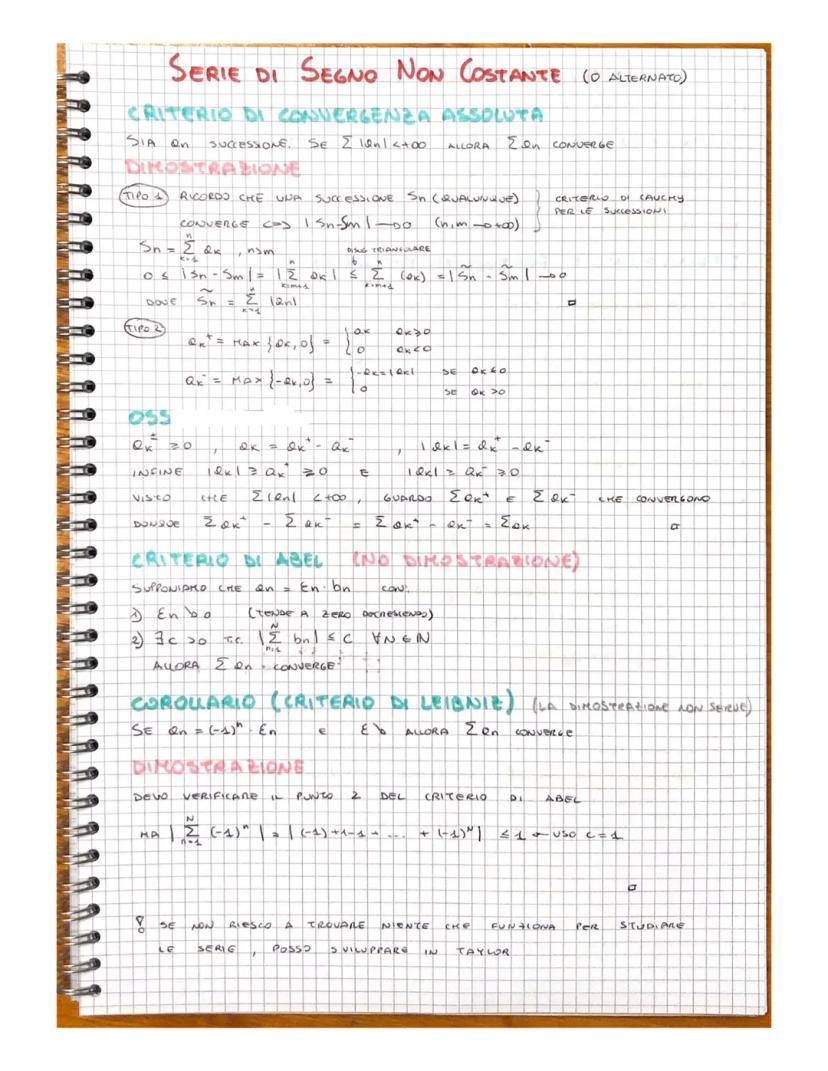 SERIE DI SEGNO NON COSTANTE (O ALTERNATO)
CRITERIO DI CONVERGENZA ASSOLUTA
SIA an SUCCESSIONE. SE Σ |an| < +∞ ALLORA Σ an CONVERGE
DIMOSTRAZIONE
TIPO 1 RICORDO CHE UNA SUCCESSIONE Sn (QUALUNQUE) } CRITERIO DI CAUCHY
CONVERGE <=> |Sn-Sm| → 0 (n,m → +∞) PER LE SUCCESSIONI
Sn = Σ_{k=1}^{n} ak , n>m DISUG TRIANGOLARE
0 ≤ |Sn - Sm| = |Σ_{k=m+1}^{n} ak| ≤ Σ_{k=m+1}^{n} (ak) = |S̃n - S̃m| → 0
DOVE S̃n = Σ_{k=1}^{n} |an| □
TIPO 2
ak⁺ = MAX {ak,0} = { ak ak≥0
0 ak<0
ak⁻ = MAX {-ak,0} = { -ak=|ak| SE ak≤0
0 SE ak>0
OSS
ak^± ≥0 , ak = ak⁺ - ak⁻ , |ak| = ak⁺ - ak⁻
INFINE |ak| ≥ ak⁺ ≥ 0 E |ak| ≥ ak⁻ ≥ 0
VISTO CHE Σ|an| < +∞ , GUARDO Σ ak⁺ E Σ ak⁻ CHE CONVERGONO
DUNQUE Σ ak⁺ - Σ ak⁻ = Σ ak⁺ - ak⁻ = Σ ak □
CRITERIO DI ABEL (NO DIMOSTRAZIONE)
SUPPONIAMO CHE an = εn · bn CON:
1) εn ↘ 0 (TENDE A ZERO DECRESCENDO)
2) ∃c >0 T.C. |Σ_{n=1}^{N} bn| ≤ C ∀N ∈ ℕ
ALLORA Σ an CONVERGE
COROLLARIO (CRITERIO DI LEIBNIZ) (LA DIMOSTRAZIONE NON SERVE)
SE an = (-1)ⁿ · εn E ε ↘ ALLORA Σ an CONVERGE
DIMOSTRAZIONE
DEVO VERIFICARE IL PUNTO 2 DEL CRITERIO DI ABEL
MA |Σ_{n=1}^{N} (-1)ⁿ| = |(-1)+1-1+ ... + (-1)ᴺ| ≤ 1 ← USO C=1
□
! SE NON RIESCO A TROVARE NIENTE CHE FUNZIONA PER STUDIARE
LE SERIE , POSSO SVILUPPARE IN TAYLOR